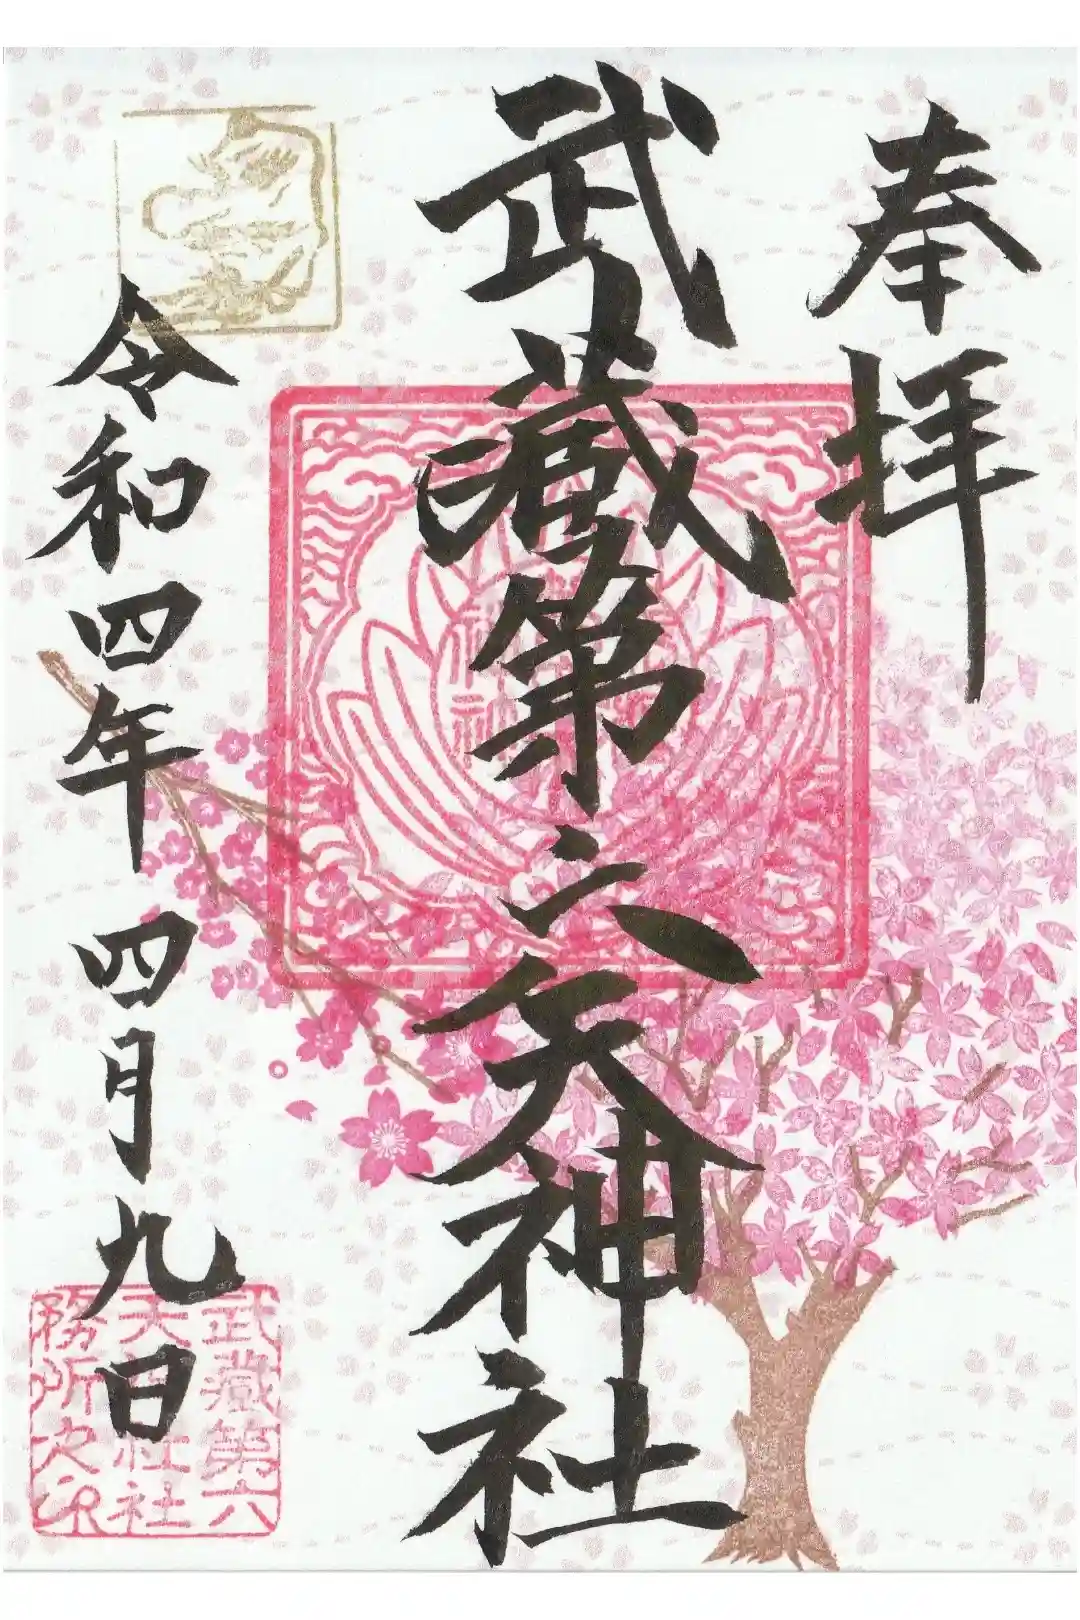 奉拝
武蔵第六天神社
令和四年四月九日
武蔵第六
天神社社
務所之印